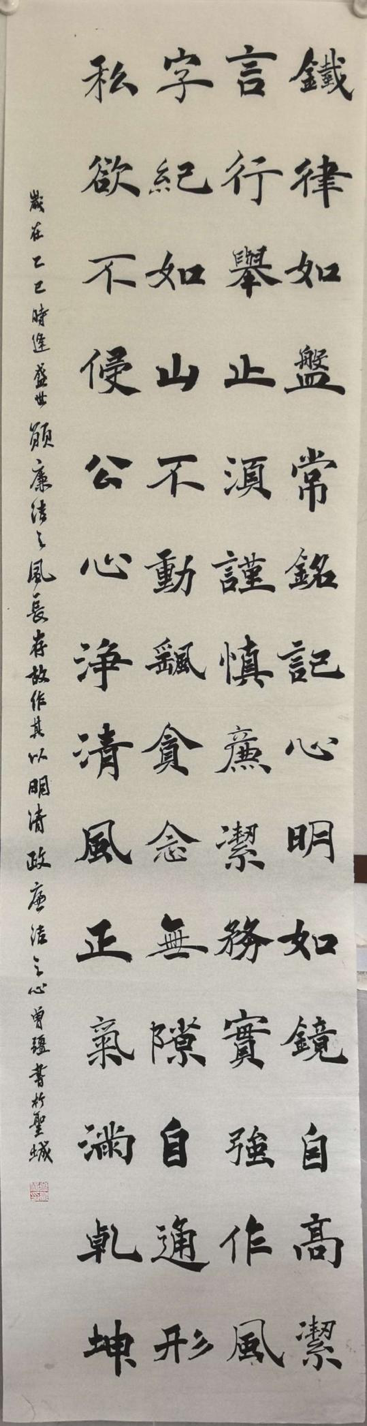 鐵律如盤常銘記心明如鏡自高潔
言行舉止須謹慎廉潔務實強作風
字紀如山不動颻貪念無隙自通形
私欲不侵公心淨清風正氣滿乾坤
歲在乙巳時逢盛世願廉洁之風長存故作其以明清政廉洁之心曾書於聖城